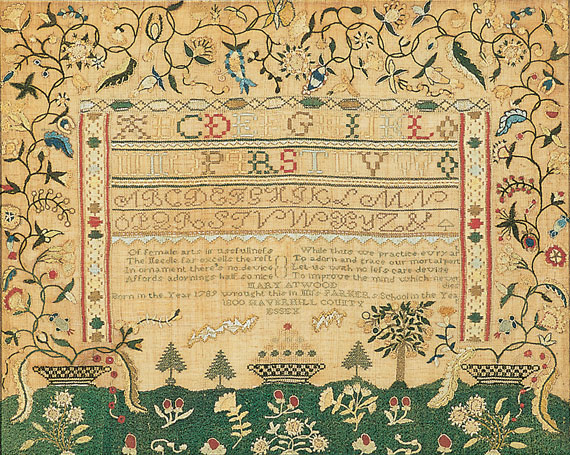 C D E G I L
P R S T V
A B C D E F G H I K L M N
O P Q R S T V W X Y Z &
Of female arts in usefullneſs
The Needle far excells the rest
In ornament there's no device
Affords adornings half so nice
While thus we practice evry art
To adorn and grace our mortal part
Let us with no leſs care devise
To improve the mind which never
dies
MARY ATWOOD
Born in the Year 1787 wrought this in Miſs PARKERs School in the Year
1800 HAVERHILL COUNTY
ESSEX